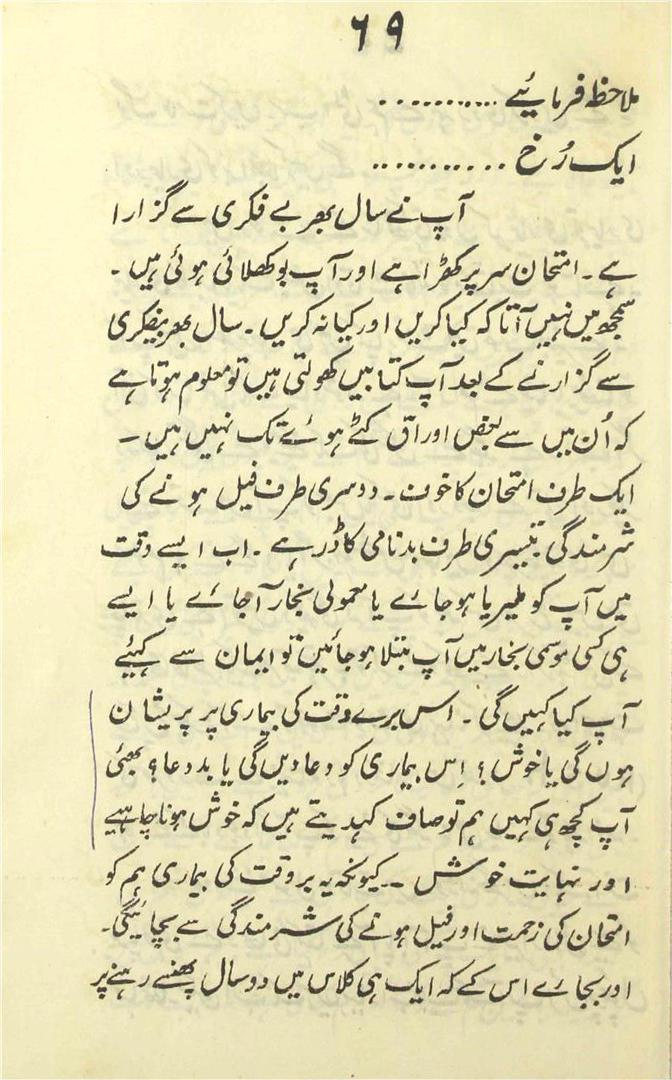 ۶۹
ملاحظہ فرمائیے ...........
ایک رُخ ...........
آپ نے سال بھر بے فکری سے گزارا
ہے۔ امتحان سر پر کھڑا ہے اور آپ بوکھلائی ہوئی ہیں۔
سمجھ میں نہیں آتا کہ کیا کریں اور کیا نہ کریں۔ سال بھر بیفکری
سے گزارنے کے بعد آپ کتابیں کھولتی ہیں تو معلوم ہوتا ہے
کہ اُن میں سے بعض اوراق کٹے ہوئے تک نہیں ہیں۔
ایک طرف امتحان کا خوف۔ دوسری طرف فیل ہونے کی
شرمندگی تیسری طرف بدنامی کا ڈر ہے۔ اب ایسے وقت
میں آپ کو ملیریا ہو جائے یا معمولی بخار آ جائے یا ایسے
ہی کسی موسمی بخار میں آپ مبتلا ہو جائیں تو ایمان سے کہیئے
آپ کیا کہیں گی۔ اس برے وقت کی بیماری پر پریشان
ہوں گی یا خوش؟ اِس بیماری کو دعا دیں گی یا بددعا؟ بھئی
آپ کچھ ہی کہیں ہم تو صاف کہدیتے ہیں کہ خوش ہونا چاہیے
اور نہایت خوش ۔ کیونکہ یہ بر وقت کی بیماری ہم کو
امتحان کی زحمت اور فیل ہونے کی شرمندگی سے بچائیگی۔
اور بجائے اس کے کہ ایک ہی کلاس میں دو سال پھنسے رہنے پر